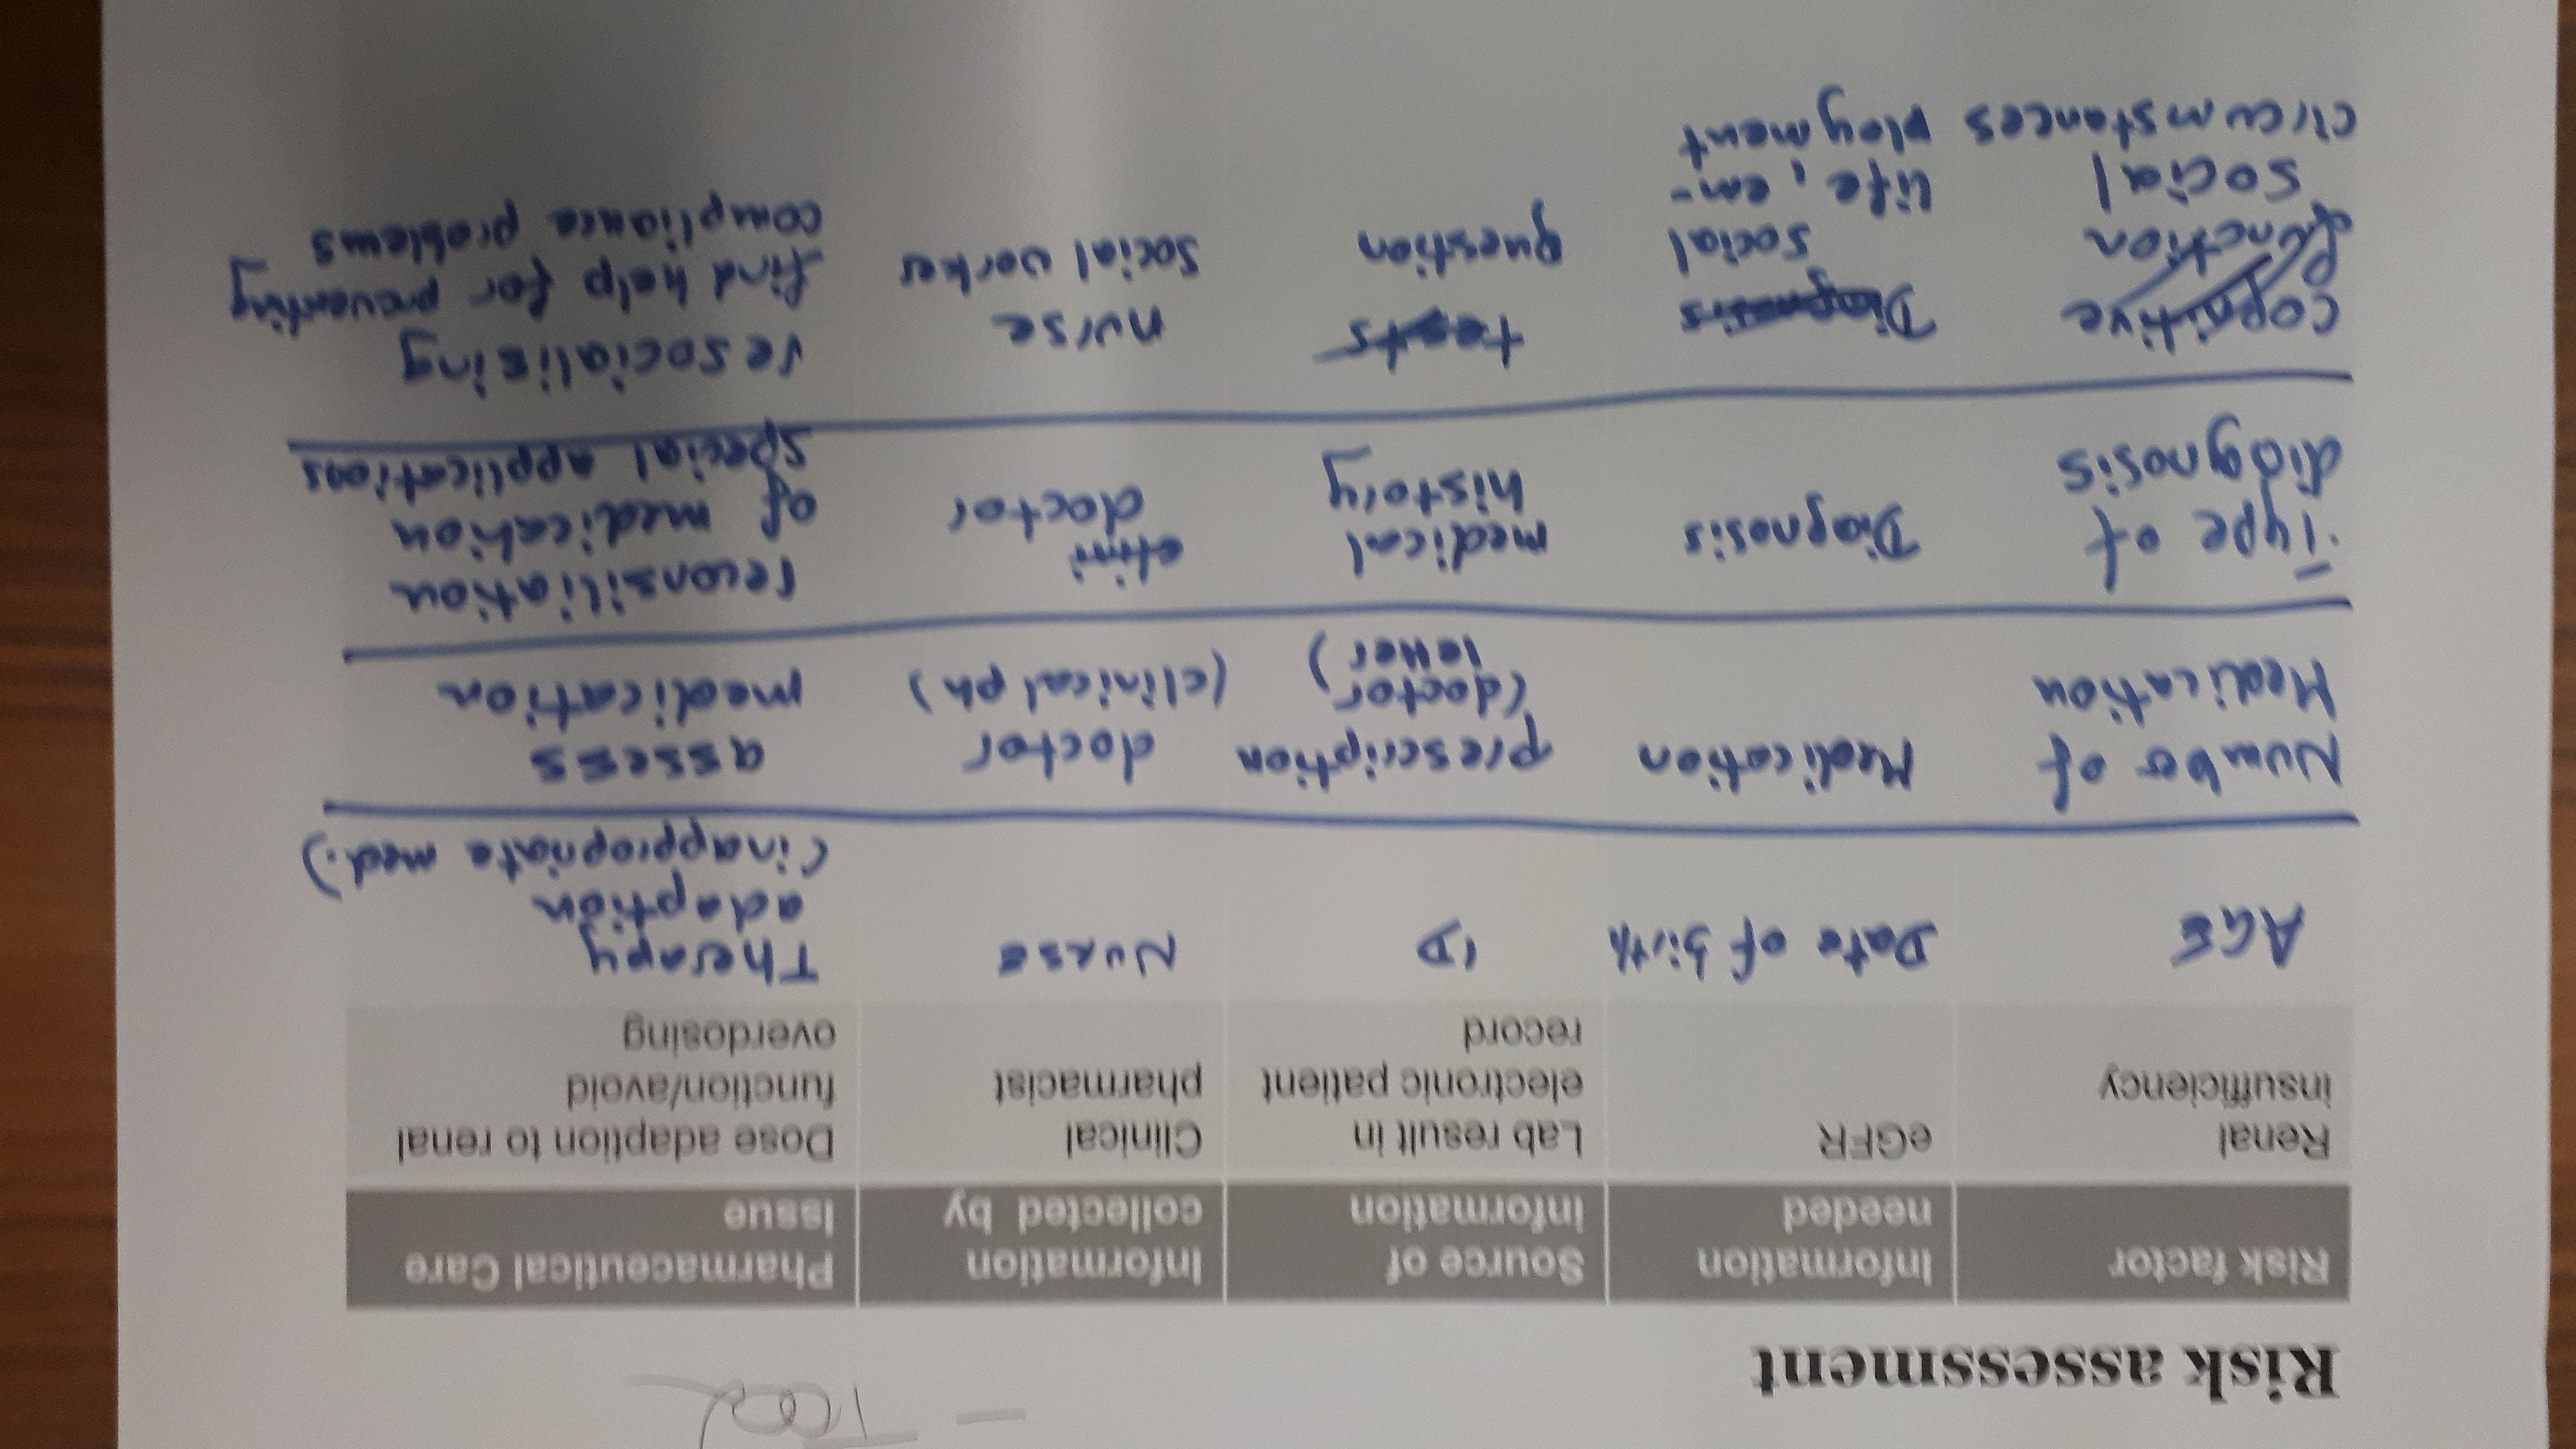 - Tool
Risk assessment
Risk factor Information needed Source of information Information collected by Pharmaceutical Care Issue
Renal insufficiency eGFR Lab result in electronic patient record Clinical pharmacist Dose adaption to renal function/avoid overdosing
AGE Date of birth ID Nurse Therapy adaption (inappropriate med.)
Number of Medication Medication prescription (doctor letter) doctor (clinical ph) assess medication
Type of diagnosis Diagnosis medical history clini doctor reconsiliation of medication special applications
cognitive function social circumstances Diagnosis social life, em-ployment tests question nurse social worker resocialising find help for preventing compliance problems